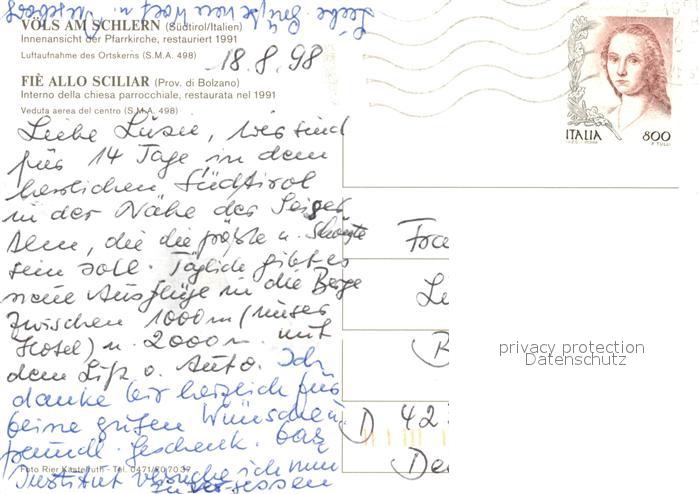 Liebe Grüße
VÖLS AM SCHLERN (Südtirol/Italien)
Innenansicht der Pfarrkirche, restauriert 1991
Luftaufnahme des Ortskerns (S.M.A. 498)
18.8.98
FIÈ ALLO SCILIAR (Prov. di Bolzano)
Interno della chiesa parrocchiale, restaurata nel 1991
Veduta aerea del centro (S.M.A. 498)
Liebe Luzie, wir sind
für 14 Tage in dem
herrlichen Südtirol
in der Nähe der Seiser
Alm, die die größte u. Schönste
sein soll. Täglich gibt es
neue Ausflüge in die Berge
zwischen 1000m (unser
Hotel) u. 2000m mit
dem Lift o. Auto. Ich
danke dir herzlich für
deine guten Wünsche u.
freundl. Geschenk. Das
Institut versuche ich nun
zu vergessen
Foto Rier Kastelruth - Tel. 0471/707037
ITALIA 800
Fra
Lu
D 42
De
privacy protection
Datenschutz